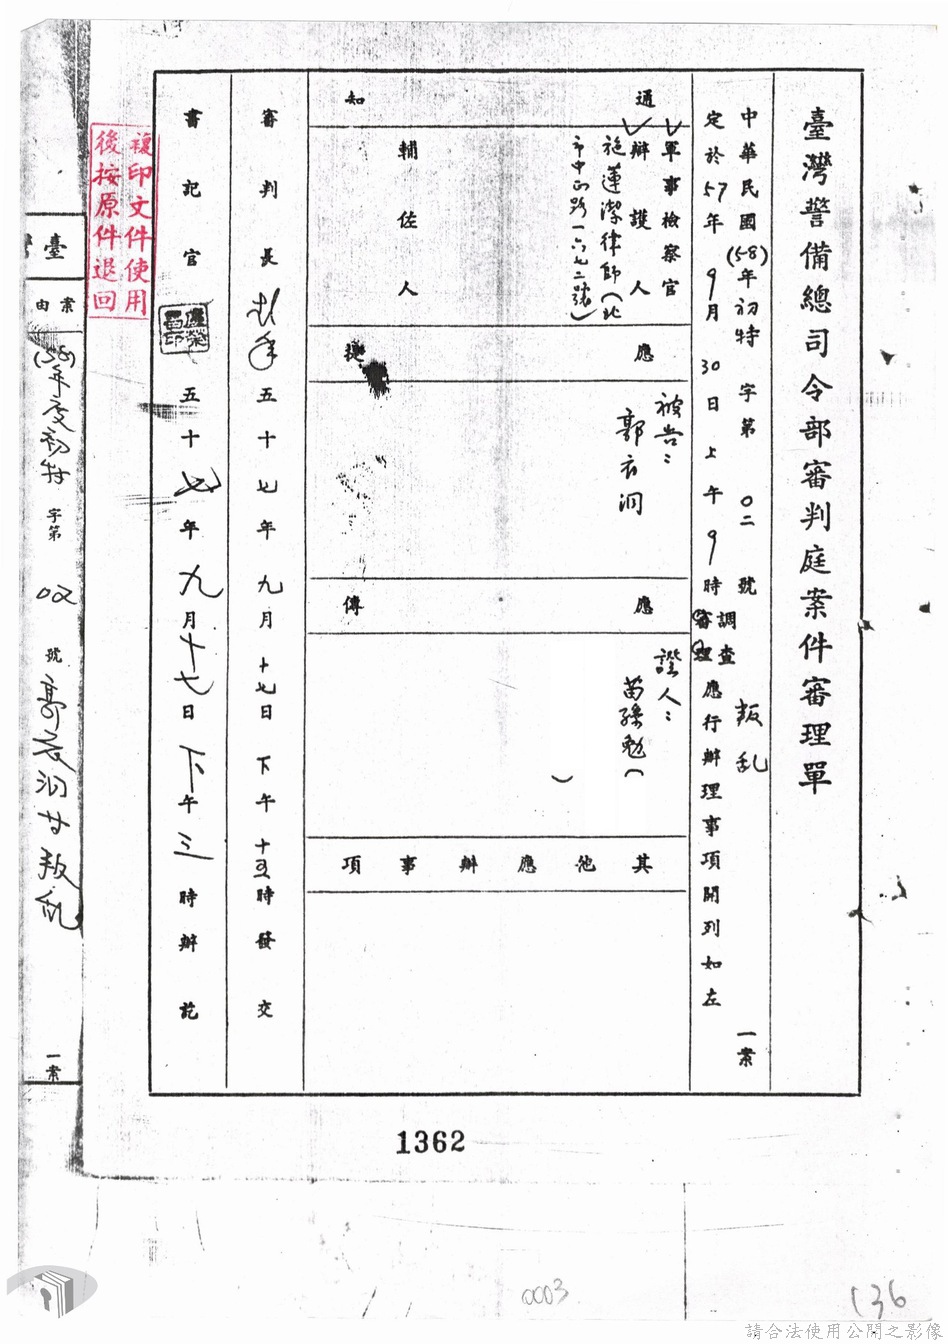 臺灣警備總司令部審判庭案件審理單
中華民國(58)年初特字第〇二號叛乱一案
定於57年9月30日上午9時調查審理應行辦理事項開列如左
通知
軍事檢察官
辯護人
施蓮潔律師(北
市中正路一六七二號)
輔佐人
應提
被告:
郭衣洞
應傳
證人:
苗
其他應辦事項
審判長
五十七年九月十七日下午十五時發交
書記官
五十七年九月十七日下午三時辦訖
複印文件使用
後按原件退回
臺
案由
(58)年度初特字第02號郭衣洞廿叛乱一案
1362
0003
136
請合法使用公開之影像